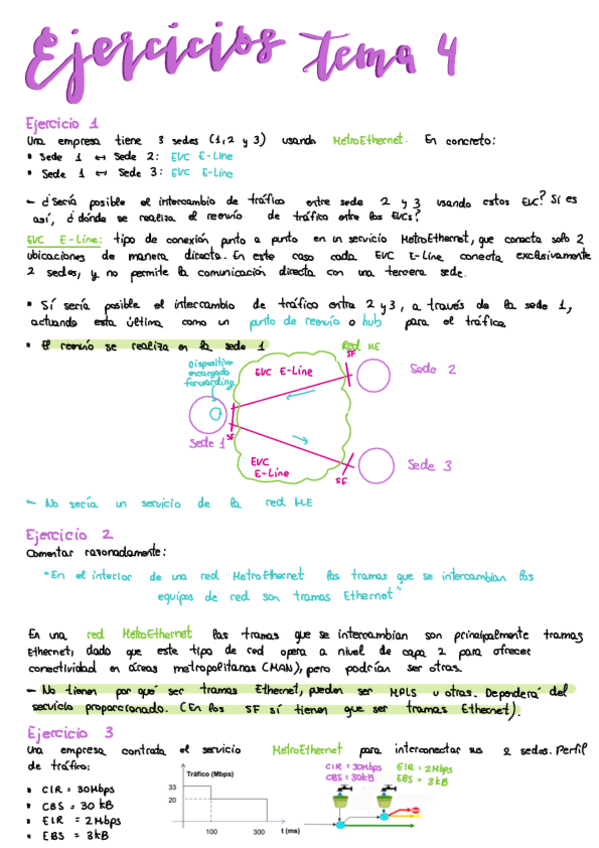 Ejercicios tema 4
Ejercicio 1
Una empresa tiene 3 sedes (1, 2 y 3) usando MetroEthernet. En concreto:
• Sede 1 ↔ Sede 2: EVC E-Line
• Sede 1 ↔ Sede 3: EVC E-Line
- ¿Sería posible el intercambio de tráfico entre sede 2 y 3 usando estos EVC? Si es
así, ¿dónde se realiza el reenvío de tráfico entre los EVCs?
EVC E-Line: tipo de conexión, punto a punto en un servicio MetroEthernet, que conecta solo 2
ubicaciones de manera directa. En este caso cada EVC E-Line conecta exclusivamente
2 sedes, y no permite la comunicación directa con una tercera sede.
• Sí sería posible el intercambio de tráfico entre 2 y 3, a través de la sede 1,
actuando esta última como un punto de reenvío o hub para el tráfico
• El reenvío se realiza en la sede 1
Red ME
Dispositivo
encargado
forwarding
EVC E-Line
SF
Sede 2
Sede 1
SF
EVC
E-Line
SF
Sede 3
- No sería un servicio de la red ME
Ejercicio 2
Comentar razonadamente:
"En el interior de una red MetroEthernet las tramas que se intercambian los
equipos de red son tramas Ethernet"
En una red MetroEthernet las tramas que se intercambian son principalmente tramas
Ethernet, dado que este tipo de red opera a nivel de capa 2 para ofrecer
conectividad en áreas metropolitanas (MAN), pero podrían ser otras.
- No tienen por qué ser tramas Ethernet, pueden ser MPLS u otras. Dependerá del
servicio proporcionado. (En los SF sí tienen que ser tramas Ethernet).
Ejercicio 3
Una empresa contrata el servicio MetroEthernet para interconectar sus 2 sedes. Perfil
de tráfico:
• CIR = 30Mbps
• CBS = 30 kB
• EIR = 2Mbps
• EBS = 3kB
Tráfico (Mbps)
33
20
100
300
t (ms)
CIR = 30Mbps
CBS = 30kB
EIR = 2Mbps
EBS = 3kB